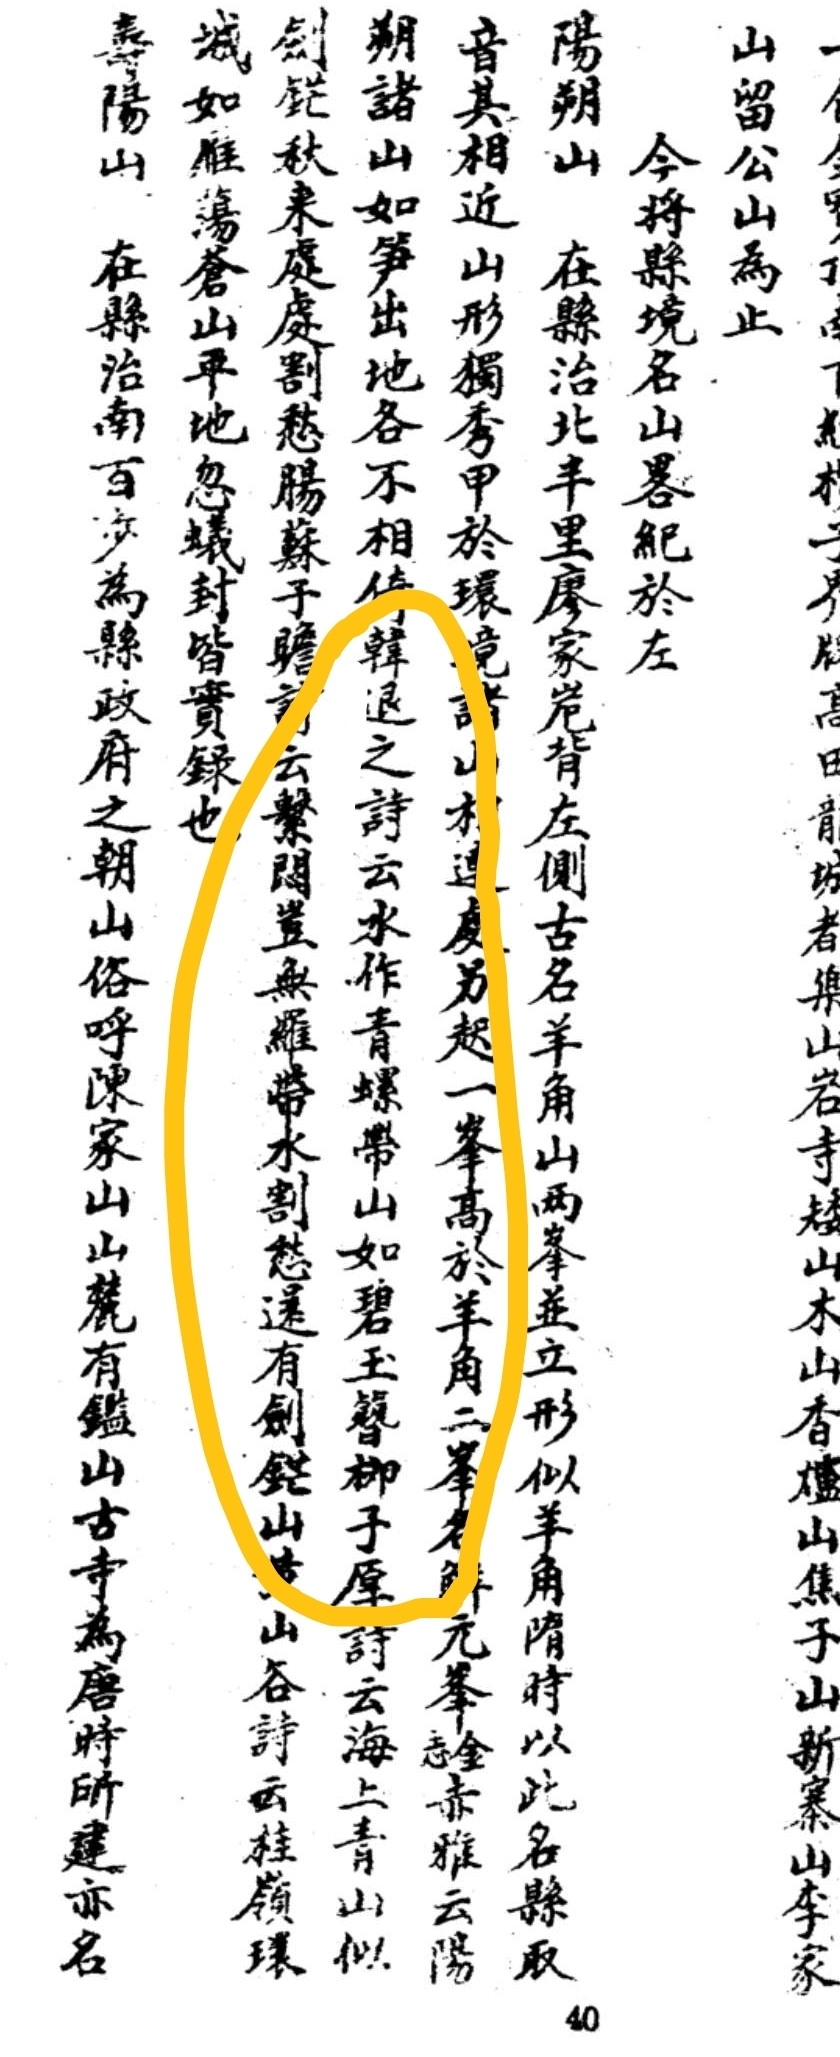 山留公山為止
今將縣境名山畧紀於左
陽朔山 在縣治北半里廖家岩背左側古名羊角山兩峯並立形似羊角隋時以此名縣取
音其相近山形獨秀甲於環境諸山相連處另起一峯高於羊角二峯名解元峯金志赤雅云陽
朔諸山如笋出地各不相倚韓退之詩云水作青螺帶山如碧玉簪柳子厚詩云海上青山似
劍鋩秋來處處割愁腸蘇子瞻詩云繫悶豈無羅帶水割愁還有劍鋩山黃山谷詩云桂嶺環
城如雁蕩蒼山平地忽蟻封皆實錄也
壽陽山 在縣治南百步為縣政府之朝山俗呼陳家山山麓有鑑山古寺為唐時所建亦名
40